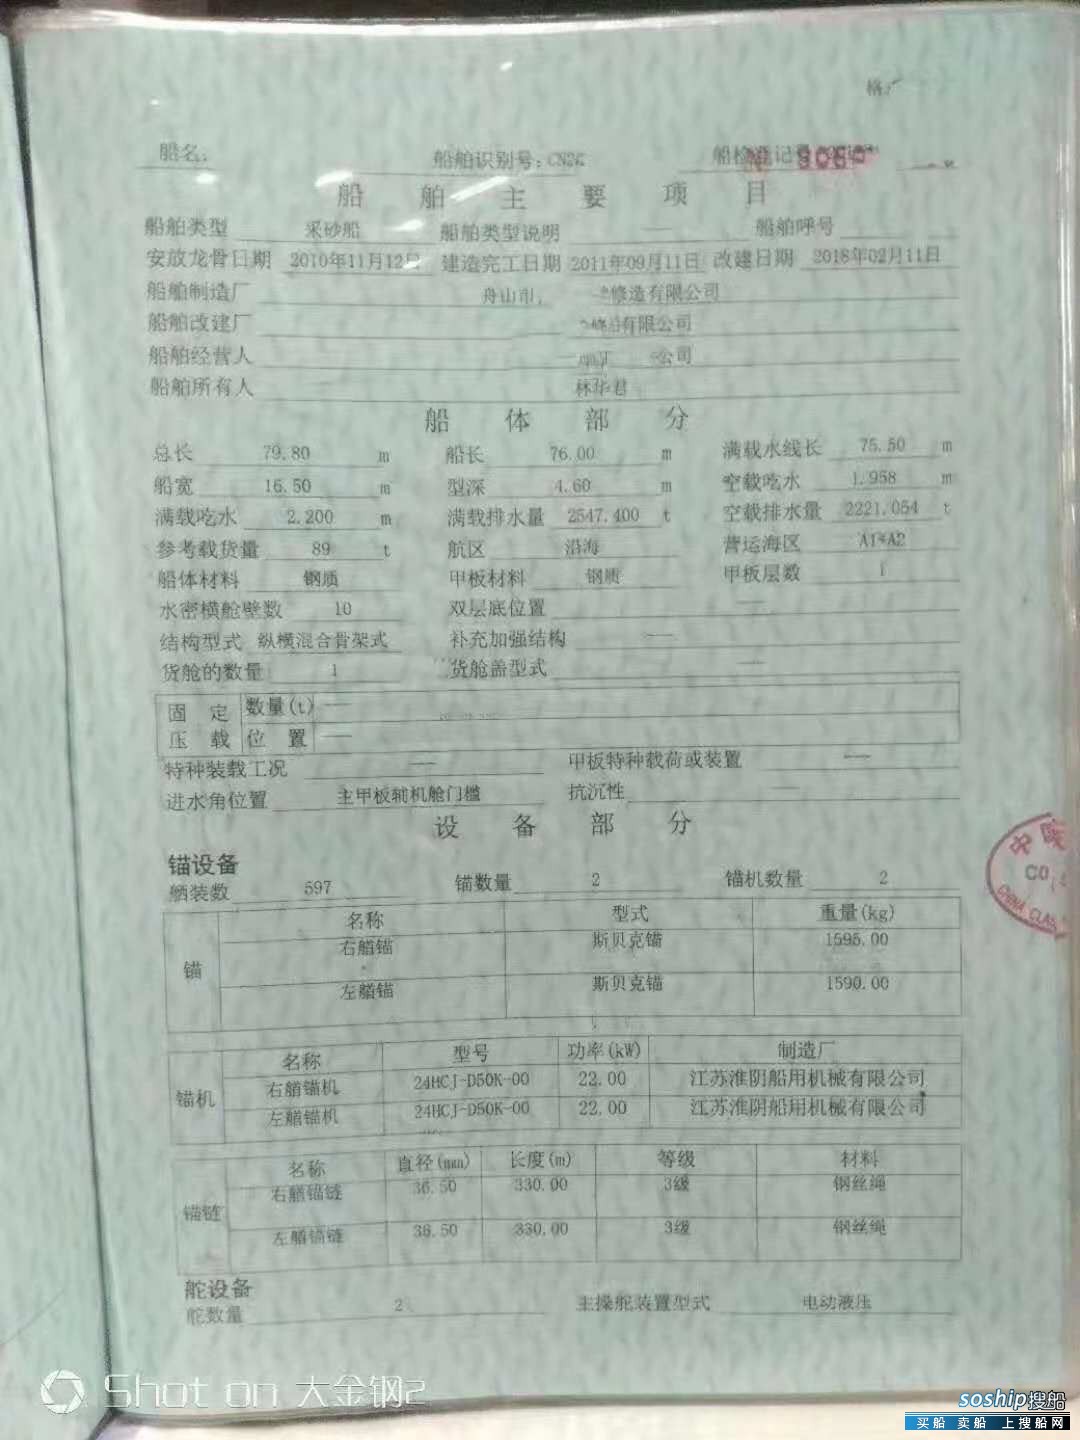 格
船名: 船舶识别号:CN2 船检登记号
船舶主要项目
船舶类型 采砂船 船舶类型说明 — 船舶呼号
安放龙骨日期 2010年11月12日 建造完工日期 2011年09月11日 改建日期 2018年02月11日
船舶制造厂 舟山市 修造有限公司
船舶改建厂 有限公司
船舶经营人 公司
船舶所有人 林华君
船体部分
总长 79.80 m 船长 76.00 m 满载水线长 75.50 m
船宽 16.50 m 型深 4.60 m 空载吃水 1.958 m
满载吃水 2.200 m 满载排水量 2547.400 t 空载排水量 2221.054 t
参考载货量 89 t 航区 沿海 营运海区 A1+A2
船体材料 钢质 甲板材料 钢质 甲板层数 1
水密横舱壁数 10 双层底位置 —
结构型式 纵横混合骨架式 补充加强结构 —
货舱的数量 1 货舱盖型式 —
固定 数量(t) —
压载 位置 —
特种装载工况 — 甲板特种载荷或装置 —
进水角位置 主甲板辅机舱门槛 抗沉性 —
设备部分
锚设备
舾装数 597 锚数量 2 锚机数量 2
名称 型式 重量(kg)
锚
右艏锚 斯贝克锚 1595.00
左艏锚 斯贝克锚 1590.00
名称 型号 功率(kW) 制造厂
锚机
右艏锚机 24HCJ-D50K-00 22.00 江苏淮阴船用机械有限公司
左艏锚机 24HCJ-D50K-00 22.00 江苏淮阴船用机械有限公司
名称 直径(mm) 长度(m) 等级 材料
锚链
右艏锚链 36.50 330.00 3级 钢丝绳
左艏锚链 36.50 330.00 3级 钢丝绳
舵设备
舵数量 2 主操舵装置型式 电动液压
中国
CHINA CLAS
Shot on 大金钢2
soship搜船
买船 卖船 上搜船网